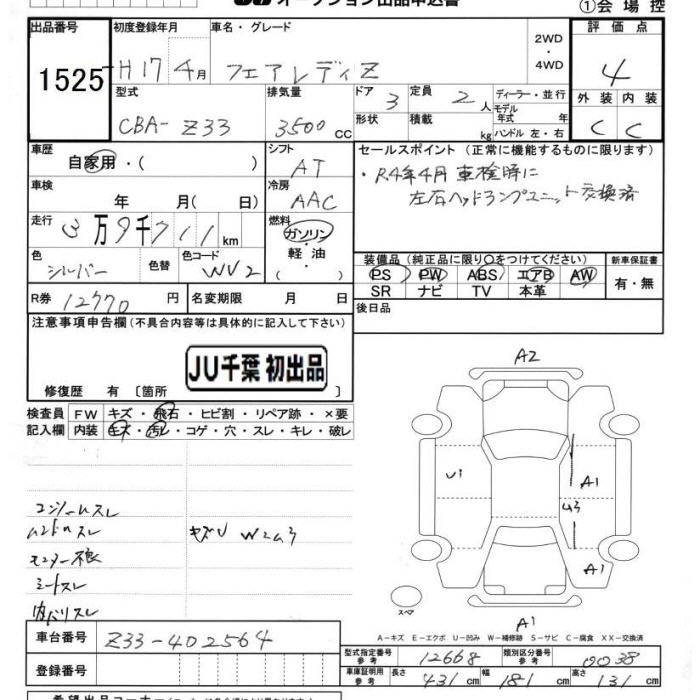 オークション出品申込書
①会場控
出品番号 初度登録年月 車名・グレード 評価点
1525 H17年4月 フェアレディZ 2WD・4WD 4
型式 排気量 ドア 3 定員 2人 ディーラー・並行 外装 内装
CBA-Z33 3500cc 形状 積載 kg モデル年式 年 C C
ハンドル 左・右
車歴 自家用・( ) シフト AT セールスポイント (正常に機能するものに限ります)
車検 年 月( 日) 冷房 AAC ・R4年4月 車検時に
左右ヘッドランプユニット交換済
走行 3万9千711km 燃料 ガソリン・軽油・( )
色 シルバー 色替 色コード WV2
装備品 (純正品に限り○をつけてください) 新車保証書
PS PW ABS エアB AW 有・無
SR ナビ TV 本革
R券 12770円 名変期限 月 日 後日品
注意事項申告欄(不具合内容等は具体的に記入して下さい)
JU千葉 初出品
修復歴 有 〔箇所 〕
検査員記入欄 FW キズ・飛石・ヒビ割・リペア跡・×要
内装 キズ・汚レ・コゲ・穴・スレ・キレ・破レ
A2
U1
A1
U3
A1
A1
スペア
コンソールスレ
ハンドルスレ キズU W2U3
シートスレ
内バリスレ
A-キズ E-エクボ U-凹み W-補修跡 S-サビ C-腐食 XX-交換済
車台番号 Z33-402564
型式指定番号 参考 12668 類別区分番号 参考 0038
登録番号
車庫証明用 参考 長さ 431cm 幅 181cm 高さ 131cm